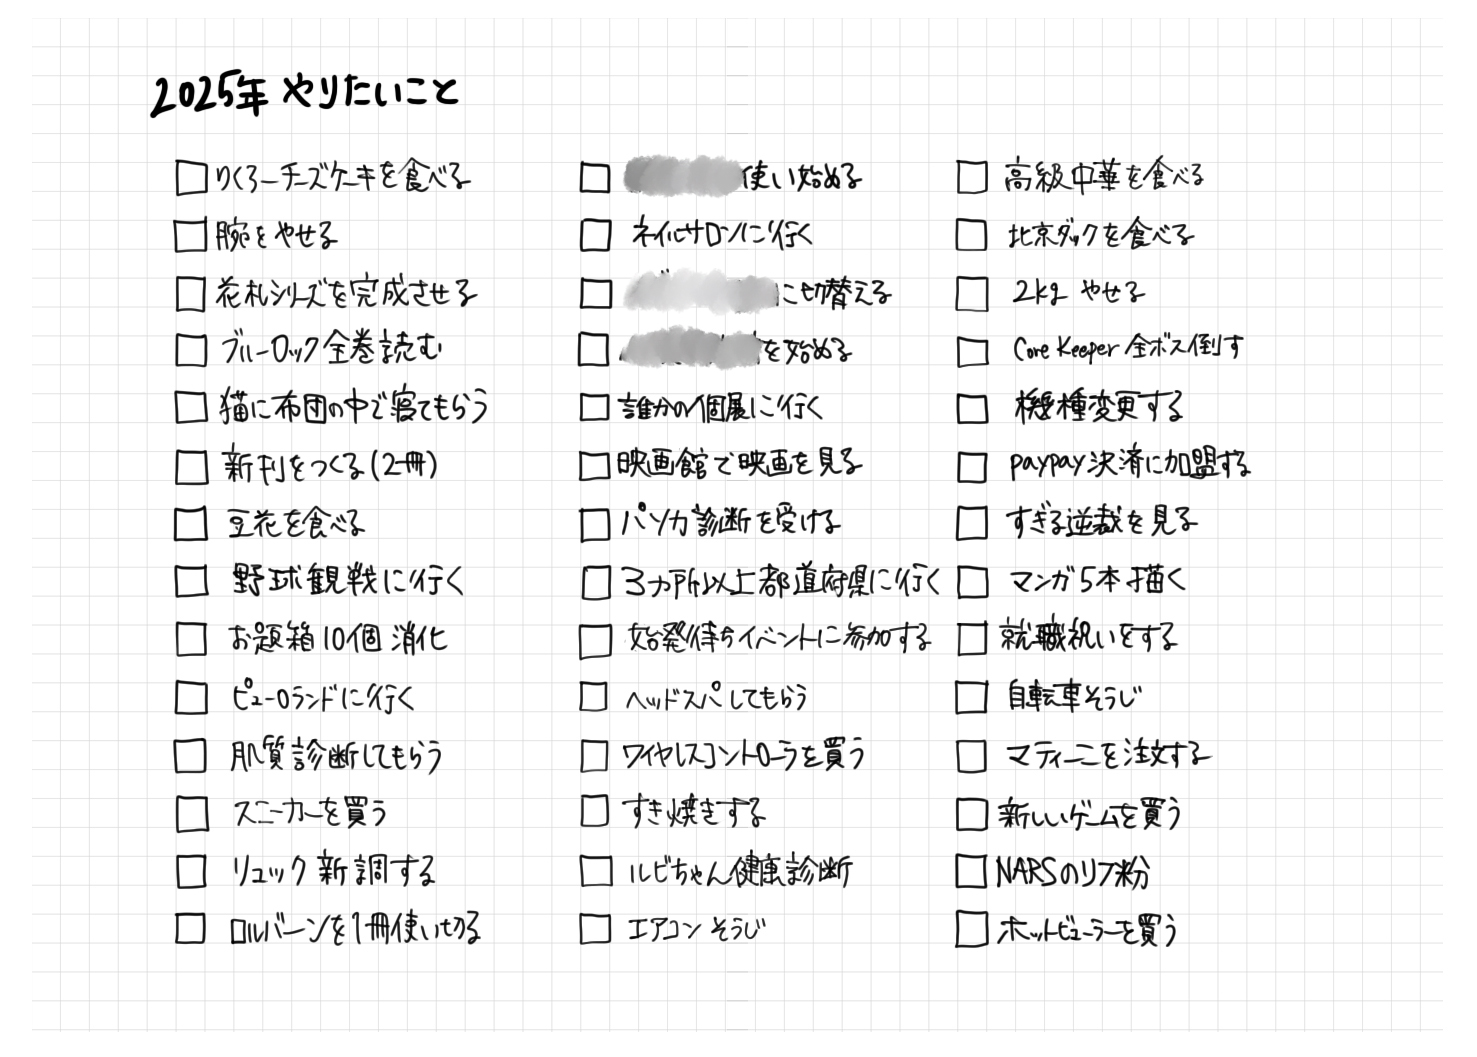 2025年 やりたいこと
りくろーチーズケーキを食べる
腕をやせる
花札シリーズを完成させる
ブルーロック全巻読む
猫に布団の中で寝てもらう
新刊をつくる(2冊)
豆花を食べる
野球観戦に行く
お題箱10個 消化
ピューロランドに行く
肌質診断してもらう
スニーカーを買う
リュック 新調する
ロルバーンを1冊使い切る
使い始める
ネイルサロンに行く
に切替える
を始める
誰かの個展に行く
映画館で映画を見る
パソカ診断を受ける
3カ所以上都道府県に行く
始発待ちイベントに参加する
ヘッドスパしてもらう
ワイヤレスコントローラを買う
すき焼きする
ルビちゃん健康診断
エアコン そうじ
高級中華を食べる
北京ダックを食べる
2kg やせる
Core Keeper 全ボス倒す
機種変更する
paypay決済に加盟する
すぎる逆裁を見る
マンガ5本描く
就職祝いをする
自転車そうじ
マティーニを注文する
新しいゲームを買う
NARSのリフ粉
ホットビューラーを買う